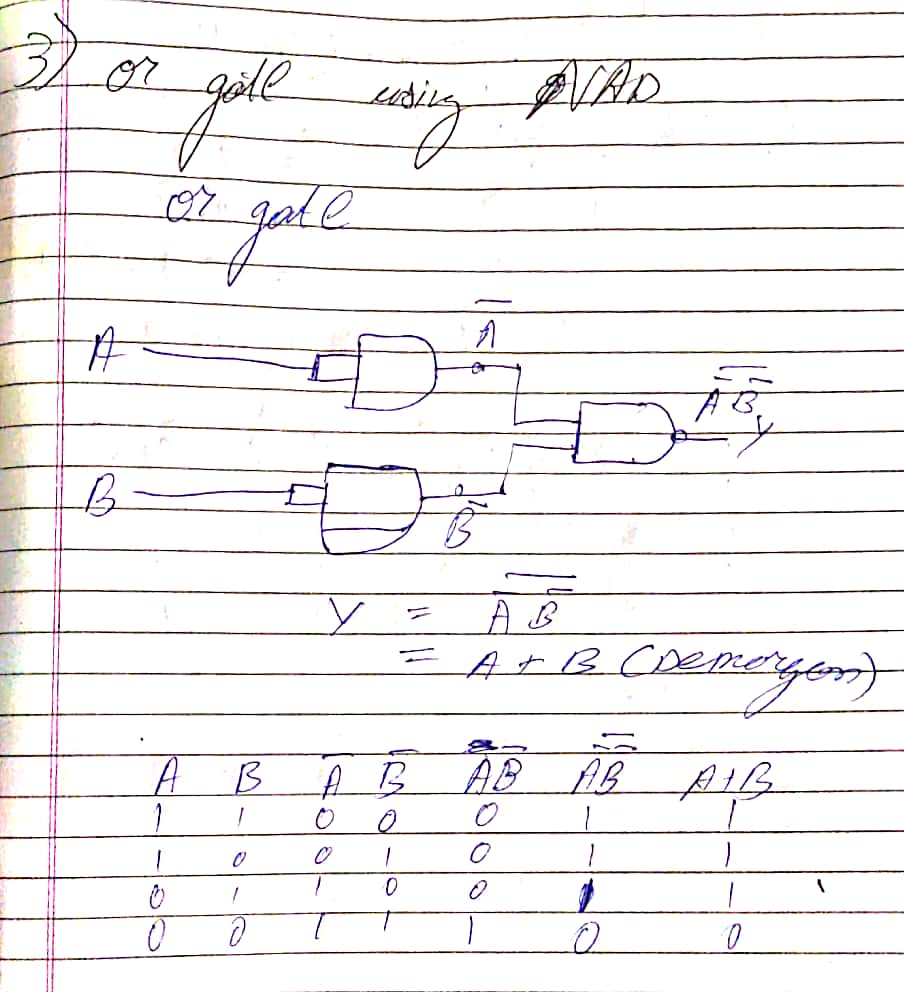 3) or gate using NAD
or gate
A̅
A
A̅ B̅ Y
B
B̅
Y = \overline{A̅ B̅}
= A + B (Demorgan)
A B A̅ B̅ A̅B̅ \overline{A̅B̅} A+B
1 1 0 0 0 1 1
1 0 0 1 0 1 1
0 1 1 0 0 1 1
0 0 1 1 1 0 0